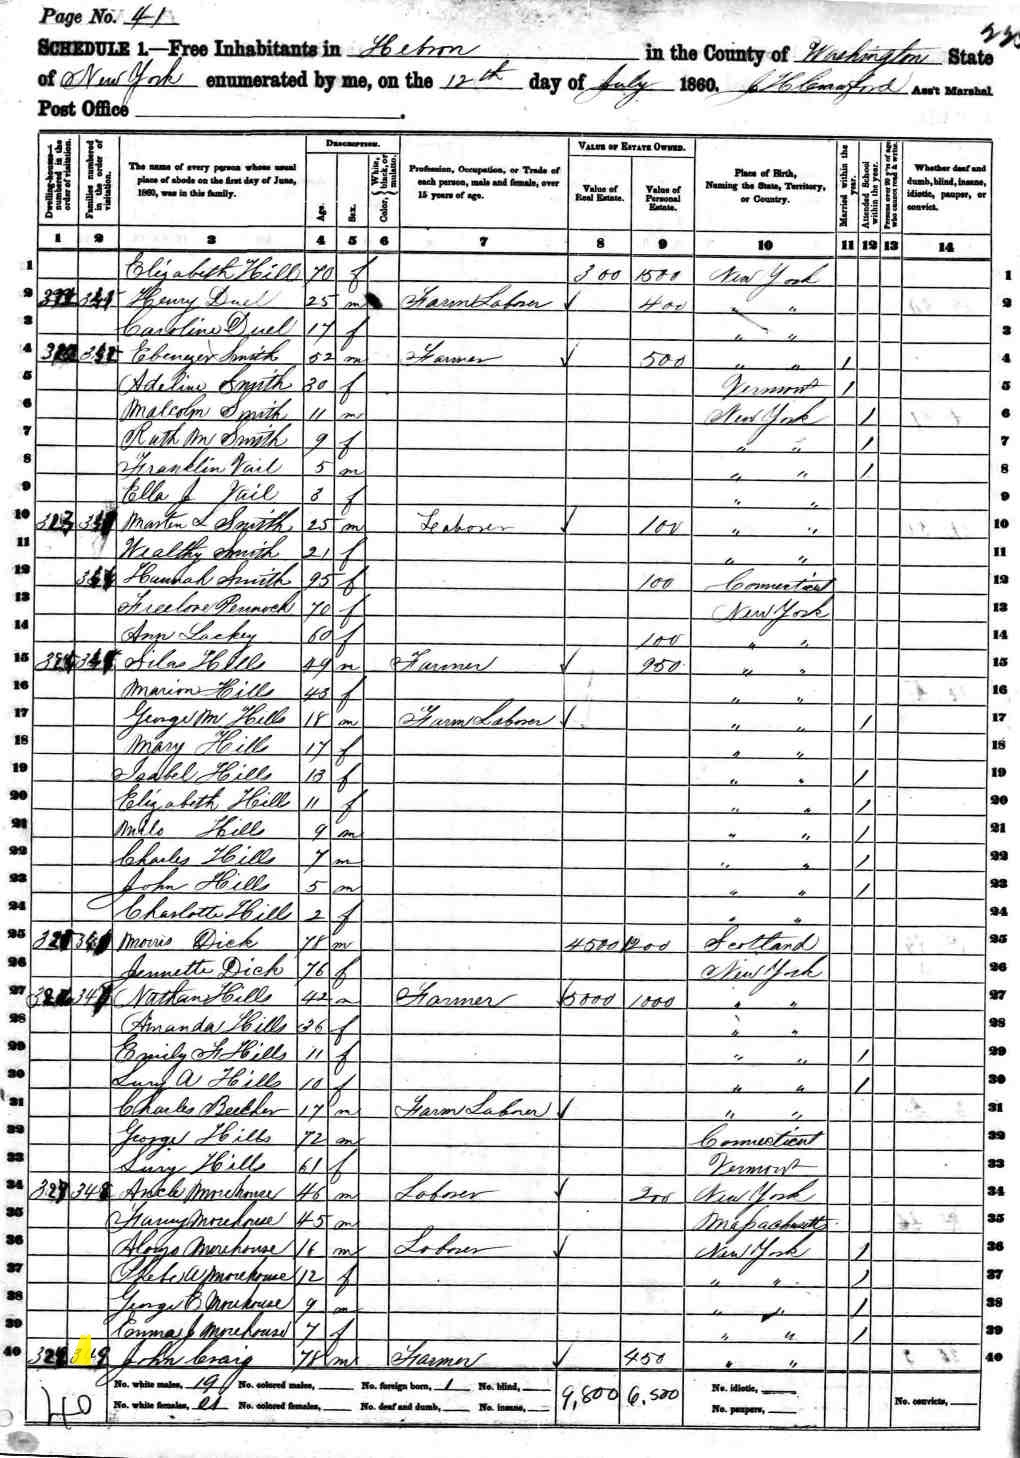 Page No. 41
SCHEDULE 1.—Free Inhabitants in Hebron in the County of Washington State
of New York enumerated by me, on the 12th day of July 1860. Ass't Marshal.
Post Office
Dwelling-houses—numbered in the order of visitation.
Families numbered in the order of visitation.
The name of every person whose usual place of abode on the first day of June, 1860, was in this family.
DESCRIPTION.
Age.
Sex.
Color, White, black, or mulatto.
Profession, Occupation, or Trade of each person, male and female, over 15 years of age.
VALUE OF ESTATE OWNED.
Value of Real Estate.
Value of Personal Estate.
Place of Birth, Naming the State, Territory, or Country.
Married within the year.
Attended School within the year.
Persons over 20 y'rs of age who cannot read & write.
Whether deaf and dumb, blind, insane, idiotic, pauper, or convict.
1 2 3 4 5 6 7 8 9 10 11 12 13 14
1 Elizabeth Hill 70 f 300 1500 New York 1
2 Henry Duel 25 m Farm Laborer 400 " " 2
3 Caroline Duel 17 f " " 3
4 Ebenezer Smith 52 m Farmer 500 " " 1 4
5 Adeline Smith 30 f Vermont 1 5
6 Malcolm Smith 11 m New York 1 6
7 Ruth M Smith 9 f " " 1 7
8 Franklin Vail 5 m " " 1 8
9 Ella J Vail 3 f " " 9
10 Martin L Smith 25 m Laborer 100 " " 10
11 Wealthy Smith 21 f " " 11
12 Hannah Smith 95 f 100 Connecticut 12
13 Freelove Pennock 70 f New York 13
14 Ann Lackey 60 f 100 " " 14
15 Silas Hills 49 m Farmer 950 " " 15
16 Marion Hills 43 f " " 16
17 George M Hills 18 m Farm Laborer " " 1 17
18 Mary Hills 17 f " " 18
19 Isabel Hills 13 f " " 1 19
20 Elizabeth Hill 11 f " " 1 20
21 Milo Hills 9 m " " 1 21
22 Charles Hills 7 m " " 1 22
23 John Hills 5 m " " 1 23
24 Charlotte Hill 2 f " " 24
25 Morris Dick 78 m 4500 1200 Scotland 25
26 Jennette Dick 76 f New York 26
27 Nathan Hills 42 m Farmer 5000 1000 " " 27
28 Amanda Hills 36 f " " 28
29 Emily F Hills 11 f " " 1 29
30 Lucy A Hills 10 f " " 1 30
31 Charles Beecher 17 m Farm Laborer " " 31
32 George Hills 72 m Connecticut 32
33 Lucy Hills 61 f Vermont 33
34 348 Morehouse 46 m Laborer 200 New York 34
35 Fanny Morehouse 45 m Massachusetts 35
36 Alonzo Morehouse 16 m Laborer New York 1 36
37 Phebe A Morehouse 12 f " " 1 37
38 George E Morehouse 9 m " " 1 38
39 Emma J Morehouse 7 f " " 1 39
40 349 John Craig 78 m Farmer 450 " " 40
40
No. white males, 19 No. colored males, No. foreign born, 1 No. blind, 9,800 6,500 No. idiotic,
No. white females, 21 No. colored females, No. deaf and dumb, No. insane, No. paupers, No. convicts,